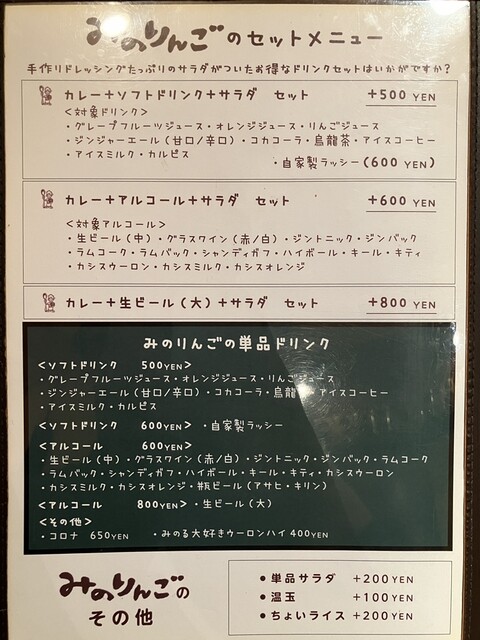 みのりんごのセットメニュー
手作りドレッシングたっぷりのサラダがついたお得なドリンクセットはいかがですか？
カレー＋ソフトドリンク＋サラダ　セット　+500 YEN
＜対象ドリンク＞
・グレープフルーツジュース・オレンジジュース・りんごジュース
・ジンジャーエール（甘口/辛口）・コカコーラ・烏龍茶・アイスコーヒー
・アイスミルク・カルピス
・自家製ラッシー(600 YEN)
カレー＋アルコール＋サラダ　セット　+600 YEN
＜対象アルコール＞
・生ビール（中）・グラスワイン（赤/白）・ジントニック・ジンバック
・ラムコーク・ラムバック・シャンディガフ・ハイボール・キール・キティ
・カシスウーロン・カシスミルク・カシスオレンジ
カレー＋生ビール（大）＋サラダ　セット　+800 YEN
みのりんごの単品ドリンク
＜ソフトドリンク　500YEN＞
・グレープフルーツジュース・オレンジジュース・りんごジュース
・ジンジャーエール（甘口/辛口）・コカコーラ・烏龍　・アイスコーヒー
・アイスミルク・カルピス
＜ソフトドリンク　600YEN＞・自家製ラッシー
＜アルコール　600YEN＞
・生ビール（中）・グラスワイン（赤/白）・ジントニック・ジンバック・ラムコーク
・ラムバック・シャンディガフ・ハイボール・キール・キティ・カシスウーロン
・カシスミルク・カシスオレンジ・瓶ビール（アサヒ・キリン）
＜アルコール　800YEN＞・生ビール（大）
＜その他＞
・コロナ　650YEN　・みのる大好きウーロンハイ 400YEN
みのりんごの
その他
●単品サラダ　+200YEN
●温玉　+100YEN
●ちょいライス　+200YEN